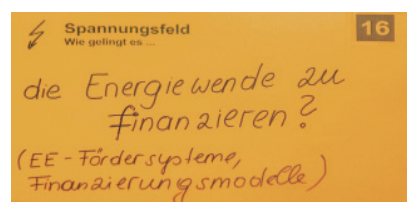 Spannungsfeld
16
Wie gelingt es ...
die Energiewende zu
finanzieren?
(EE-Fördersysteme,
Finanzierungsmodelle)